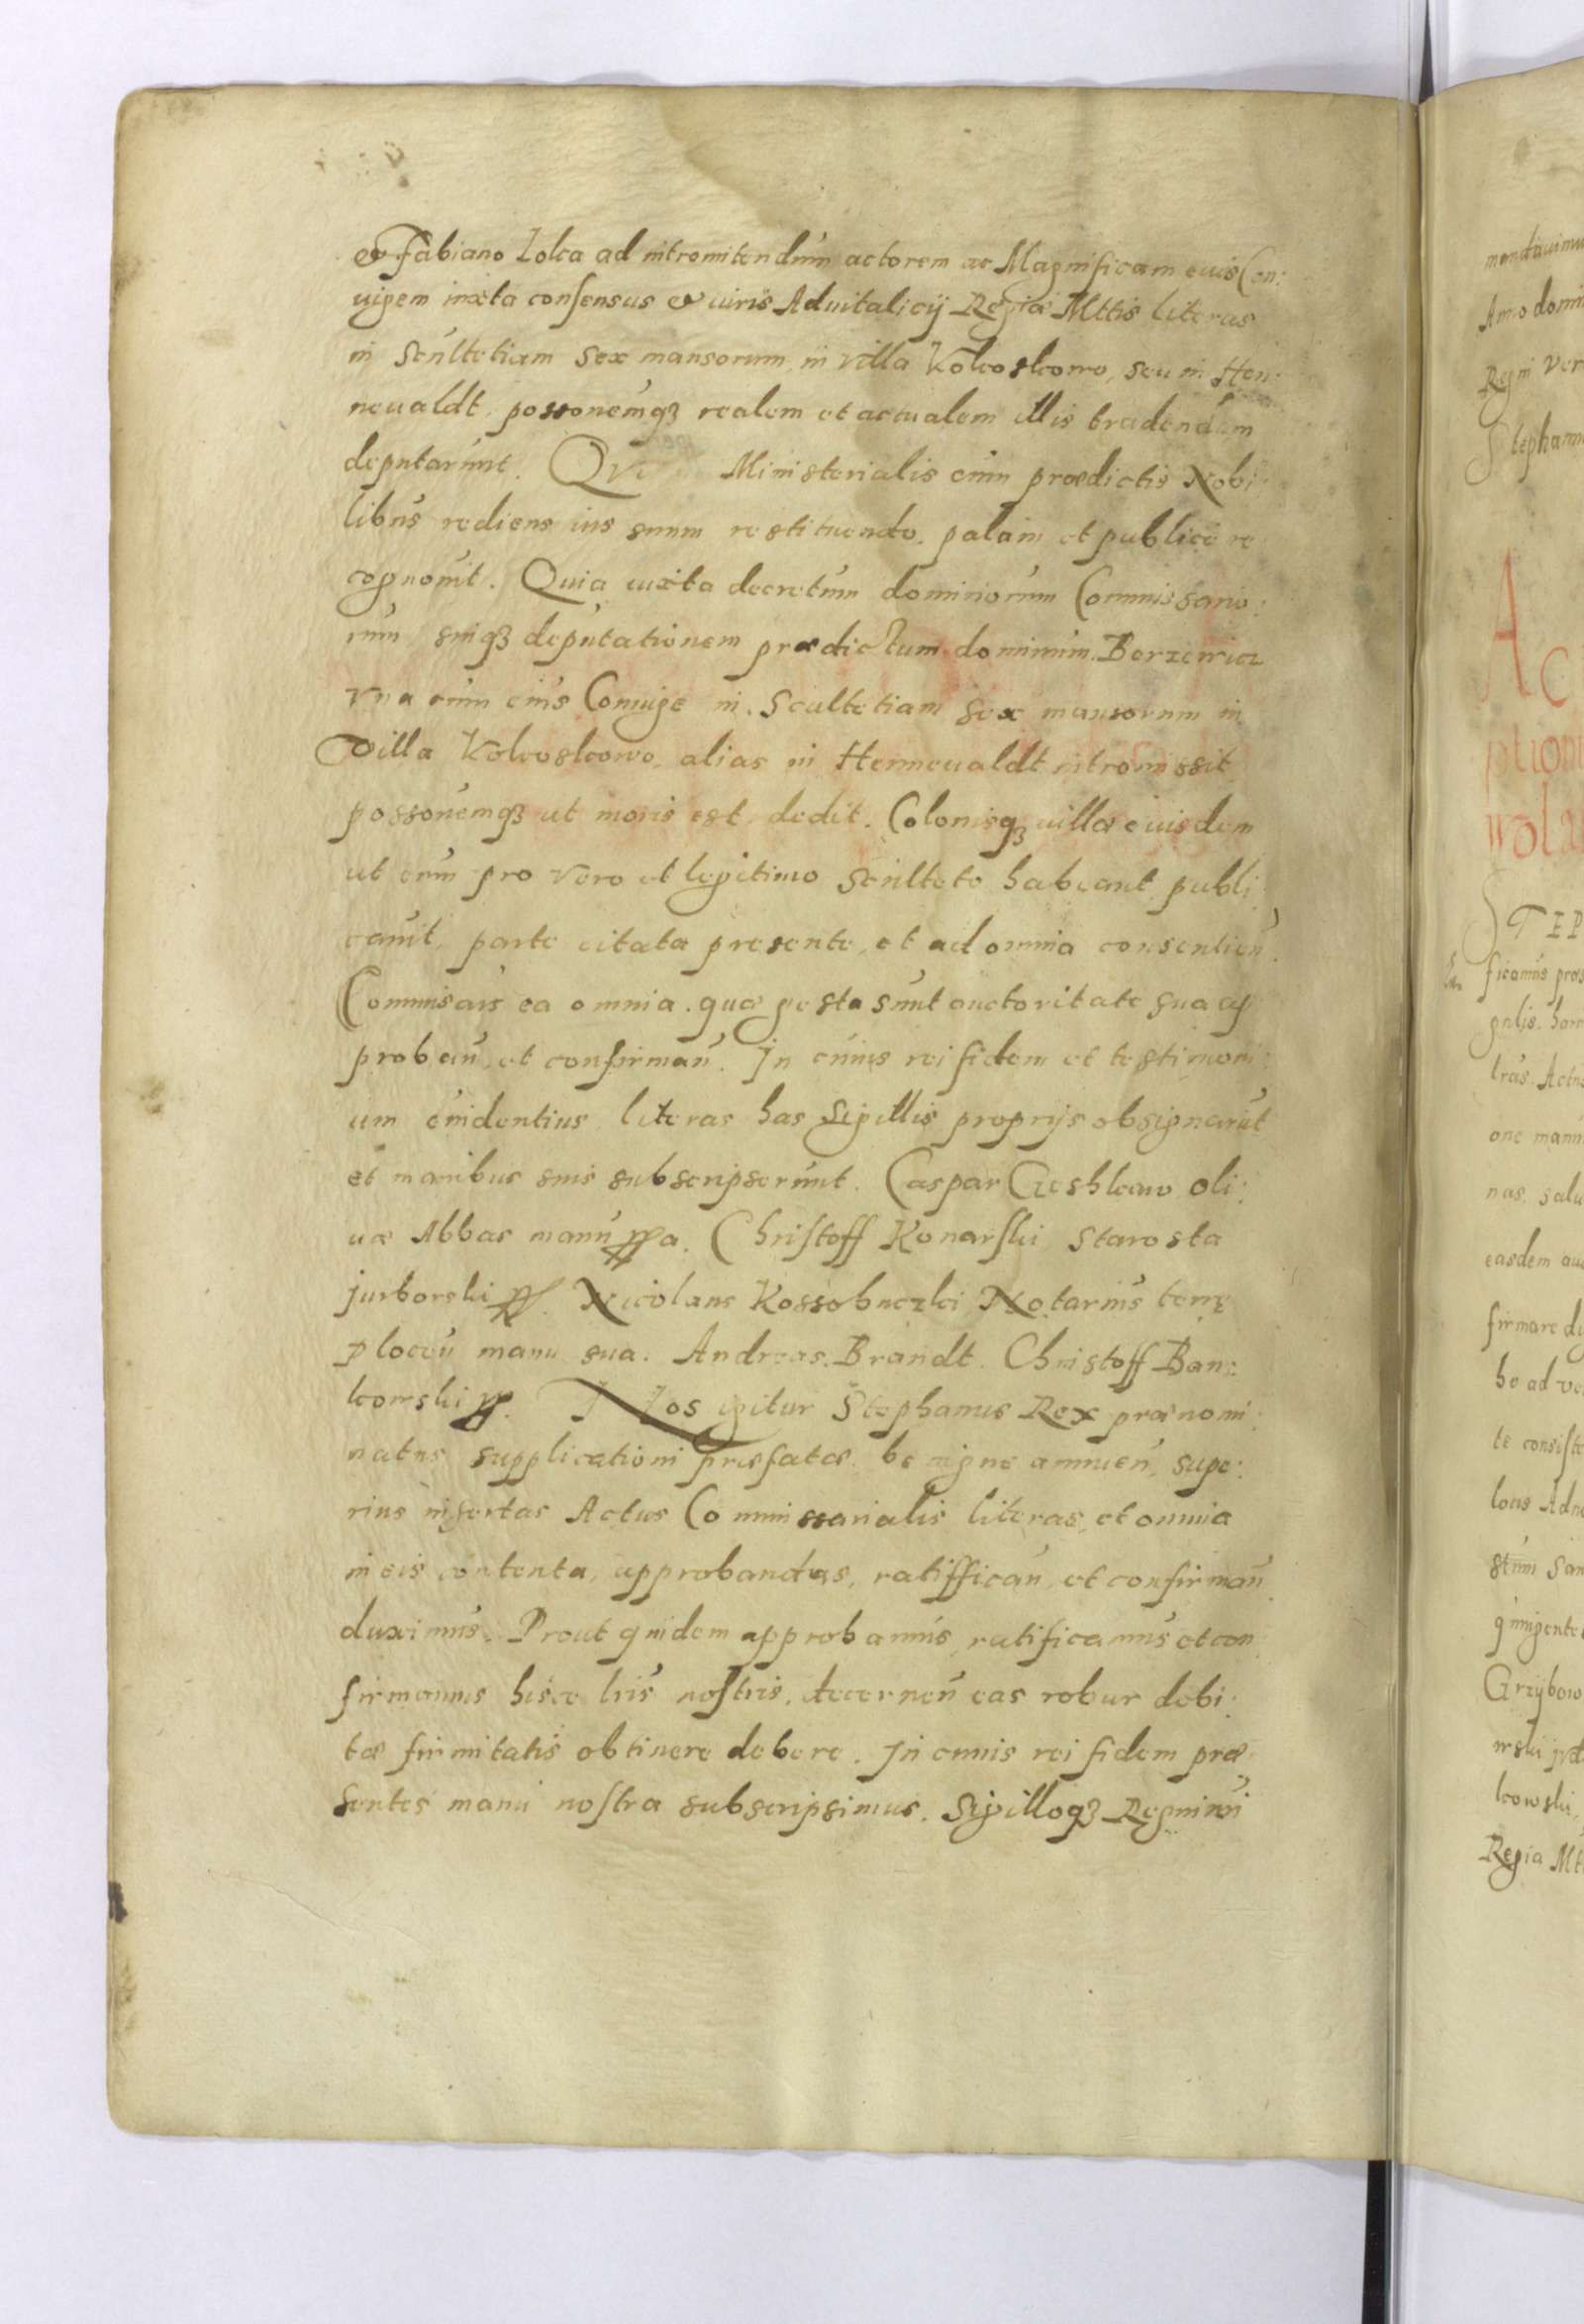 et Fabiano Lolca ad intromitendum actorem ac Magnificam euis Con:
uigem iuxta consensus et iuris Aduitalicij Regiæ Mttis literas
in Scultetiam sex mansorum, in villa Kolcoskowo, seu in Hen:
neualdt, possonemqȝ realem et actualem illis tradendam
deputarunt. Qvi Ministerialis cum prædictis Nobi:
libus rediens ius suum restituendo, palam et publice re
cognouit. Quia iuxta decretum dominorum Commissario:
rum suiqȝ deputationem prædictum dominum Berzewicz
vna cum eius Coniuge in Scultetiam sex mansorum in
Villa Kolcoskowo, alias in Henneualdt intromissit
possonemqȝ ut moris est, dedit. Colonisqȝ villæ eiusdem
ut eum pro vero et legitimo Sculteto habeant publi:
cauit, parte citata presente, et ad omnia consentień.
Commisarij ea omnia, quæ gesta sunt auctoritate sua ap
probań, et confirmań. In cuius rei fidem et testimoni:
um euidentius literas has Sigillis proprijs obsignarūt
et manibus suis subscripserunt. Caspar Geshkaw oli:
uæ Abbas manu ppa. Christoff Konarski Starosta
jurborski pp. Nicolaus Kossobuczki Notarius terrę
Plocen manu sua. Andreas Brandt. Christoff Ban:
kowski pp. Nos igitur Stephanus Rex prænomi:
natus supplicationi præfatæ benigne annueń, supe:
rius insertas Actus Commissarialis literas, et omnia
in eis contenta, approbandas, ratifficań, et confirmań
duximus. Prout quidem approbamus, ratificamus et con
firmamus hisce lris nostris, decerneń eas robur debi:
tæ firmitatis obtinere debere. In cuius rei fidem præ
sentes manu nostra subscripsimus. Sigilloqȝ Regni nri
mandauimus
Regni
Stephanus
Ac
ption
wola
STEP
ficamus
easdem
firmare
Regia Mt